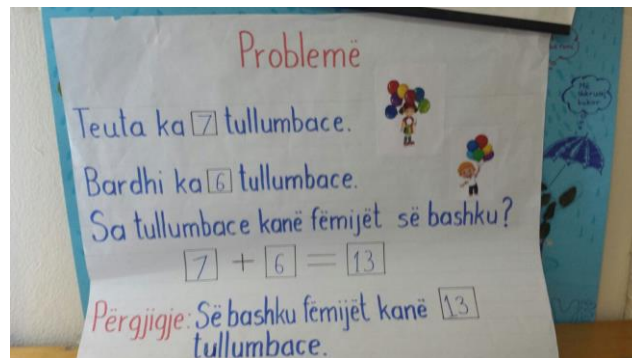 Problemë
Teuta ka 7 tullumbace.
Bardhi ka 6 tullumbace.
Sa tullumbace kanë fëmijët së bashku?
7 + 6 = 13
Përgjigje: Së bashku fëmijët kanë 13
tullumbace.